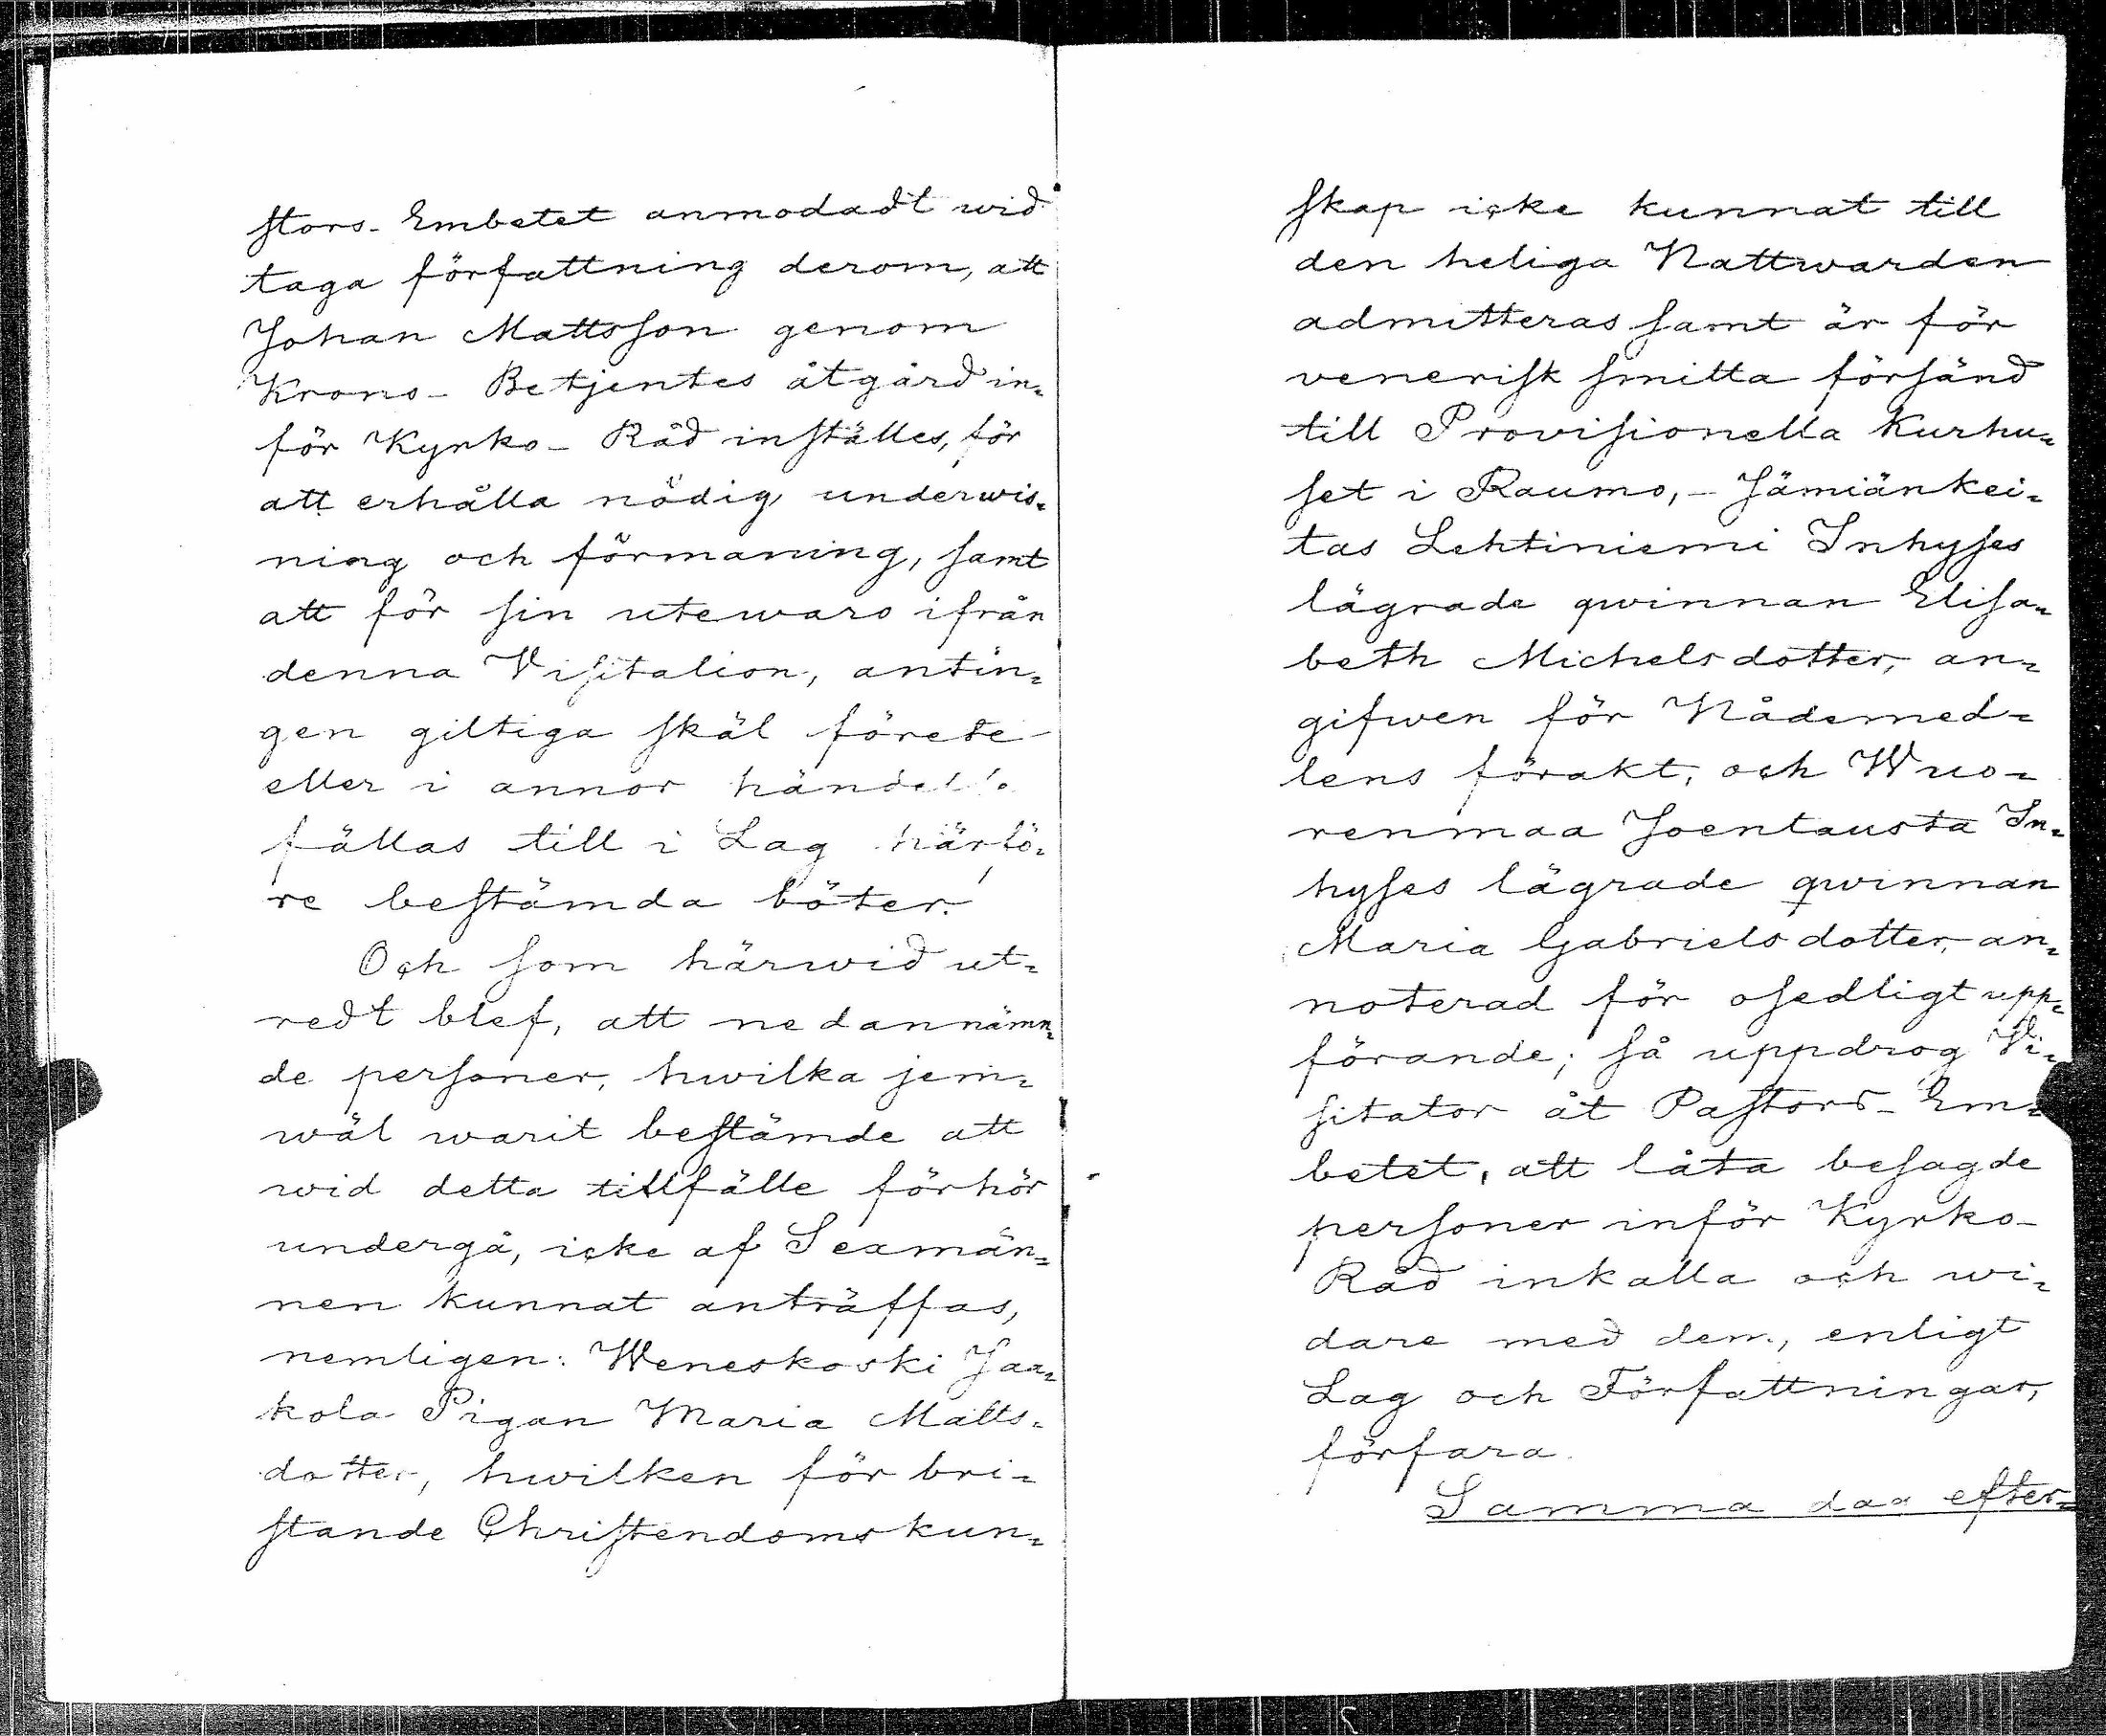 stors-Embetet anmodadt wid
taga författning derom, att
Johan Mattsson genom
Krono-Betjentes åtgärd in=
för Kyrko-Råd inställes, för
att erhålla nödig underwis=
ning och förmaning, samt
att för sin utewaro ifrån
denna Visitation, antin=
gen giltiga skäl förete
eller i annor händelse
fällas till i Lag härfö=
re bestämda böter.
Och som härwid ut=
redt blef, att nedannämn=
de personer, hwilka jem=
wäl warit bestämde att
wid detta tillfälle förhör
undergå, icke af Sexmän=
nen kunnat anträffas,
nemligen: Weneskoski Jaa=
kola Pigan Maria Matts=
dotter, hwilken för bri=
stande Christendomskun=
skap icke kunnat till
den heliga Nattwarden
admitteras samt är för
venerisk smitta försänd
till Provisionella Kurhu=
set i Raumo, – Jämiänkei=
tas Lehtiniemi Inhyses
lägrade qwinnan Elisa=
beth Michelsdotter, an=
gifwen för Nådemed=
lens förakt, och Wuo=
renmaa Joentausta In=
hyses lägrade qwinnan
Maria Gabrielsdotter, an=
noterad för osedligt upp=
förande; så uppdrog Vi=
sitator åt Pastors-Em=
betet, att låta besagde
personer inför Kyrko-
Råd inkalla och wi=
dare med dem, enligt
Lag och Författningar,
förfara.
Samma dag efter=